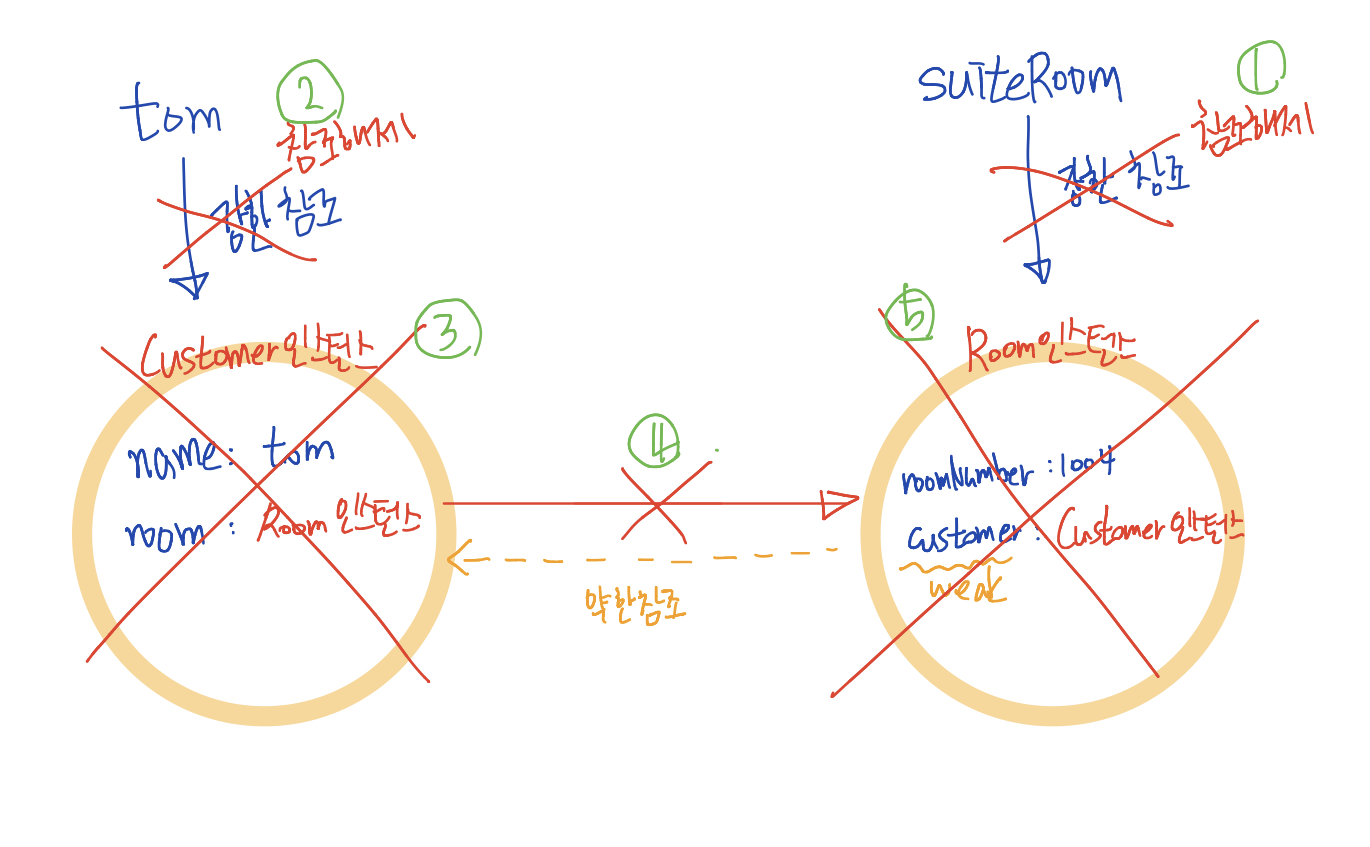 tom
2
참조해제
강한 참조
suiteRoom
1
참조해제
강한 참조
Customer인스턴스
3
name: tom
room: Room인스턴스
4
약한참조
5
Room인스턴스
roomNumber:1004
customer: Customer인스턴스
weak